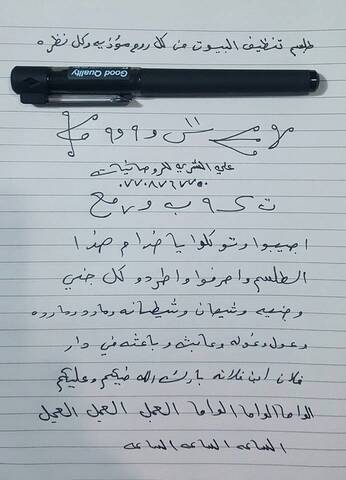 طلسم تنظيف البيوت من كل روح مؤذيه وكل نظره
Good Quality
علي الشمري للروحانيات
٠٧٧٠٨٧٦٧٧٥٠
اجيبوا وتوكلوا يا خدام هذا
الطلسم واحرقوا واطردو كل جني
وجنيه وشيطان وشيطانه ومارد ومارده
وغول وغوله وعابثه وباعثه في دار
فلان ابن فلانه بارك الله فيكم وعليكم
الواحا الواحا الواحا العجل العجل العجل
الساعه الساعه الساعه